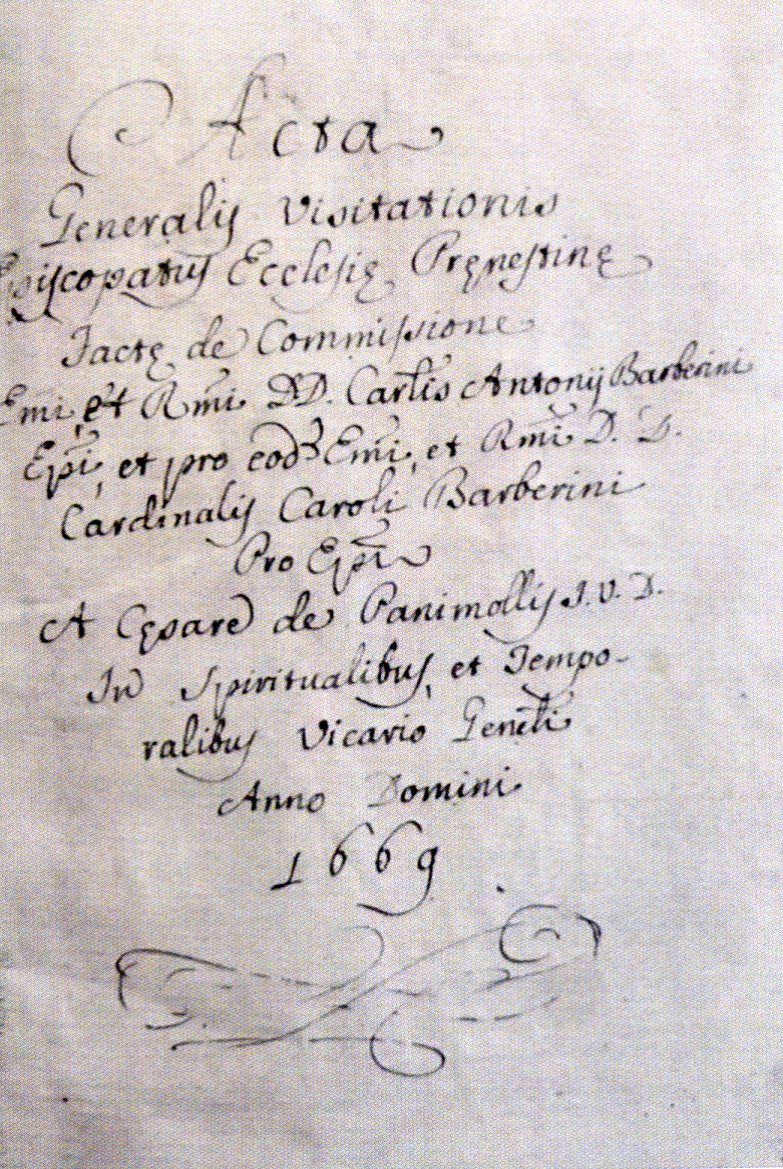 Acta
Generalis Visitationis
Episcopatus Ecclesię Pręnestinę
Factę de Commissione
Em̃i, et Rm̃i DD. Carlis Antonij Barberini
Ep̃i, et pro eod. Em̃i, et Rm̃i D. D.
Cardinalis Caroli Barberini
Pro Ep̃i
A Cęsare de Panimollis J. V. D.
In Spiritualibus, et Tempo-
ralibus Vicario Gen̄li
Anno Domini
1669